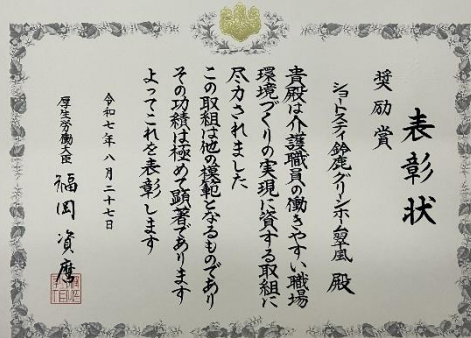 表彰状
奨励賞
ショートステイ鈴鹿グリーンホーム翠風 殿
貴殿は介護職員の働きやすい職場
環境づくりの実現に資する取組に
尽力されました
この取組は他の模範となるものであり
その功績は極めて顕著であります
よってこれを表彰します
令和七年八月二十七日
厚生労働大臣 福岡資麿